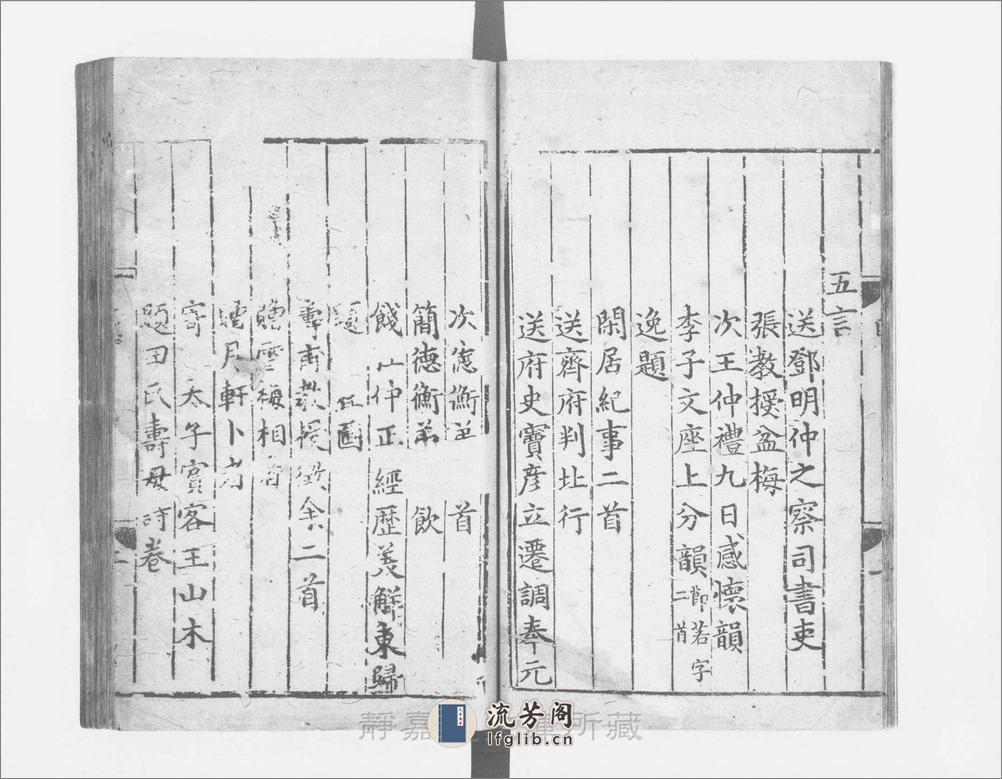 五言
送鄧明仲之察司書吏
張教授盆梅
次王仲禮九日感懷韻
李子文座上分韻
節若字
二首
逸題
閑居紀事二首
送齊府判北行
送府史竇彦立遷調奉元
次憲衡 首
簡德衡 飲
餞 仲正經歷美解東歸
題 圖
教授 二首
贈雲梅相者
月軒卜者
寄太子賓客王山木
題田氏壽母詩卷
靜嘉 所藏
流芳阁
lfglib.cn